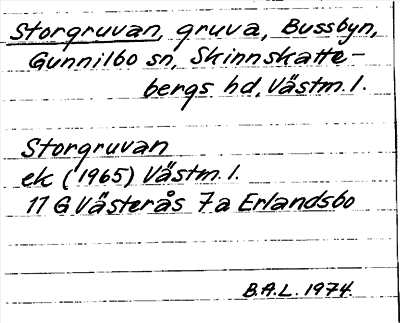 Storgruvan, gruva, Bussbyn,
Gunnilbo sn, Skinnskatte-
bergs hd, Västm. l.
Storgruvan
ek (1965) Västm. l.
11 G Västerås 7a Erlandsbo
B.A.L. 1974.